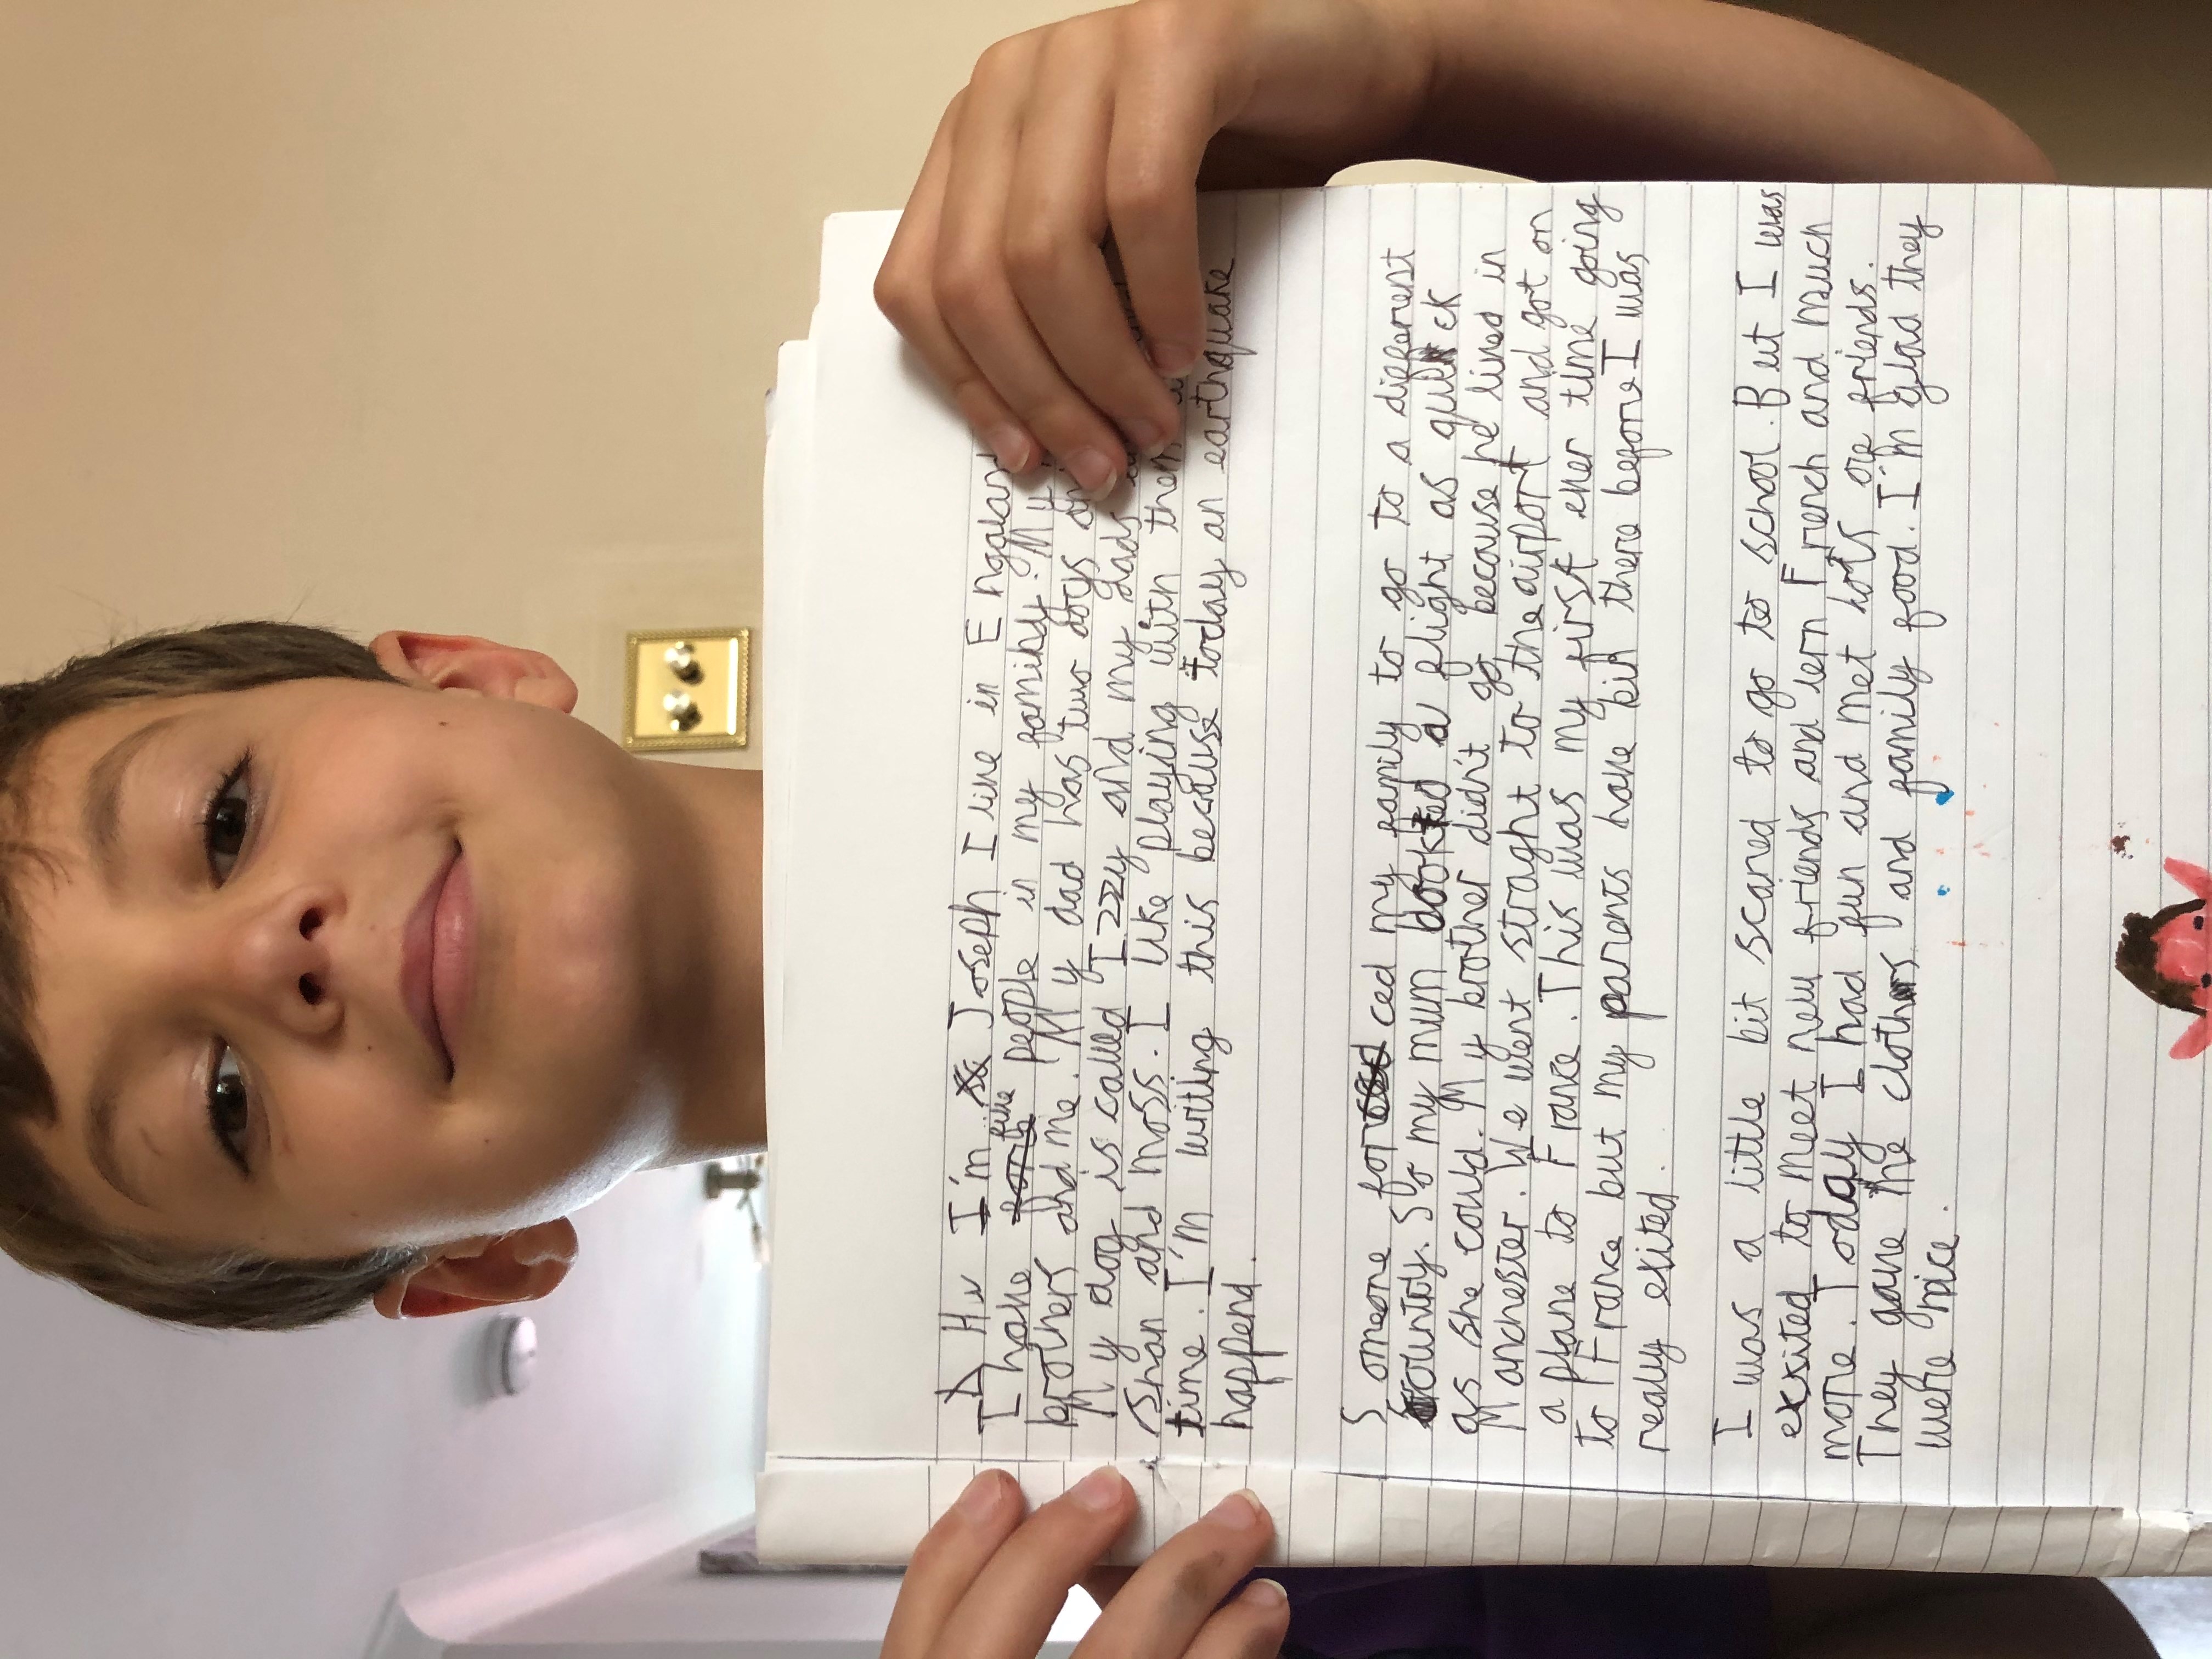 Hi I'm Joseph I live in Engaland
I have five people in my family. My
brothers and me. My dad has two dogs
My dog is called Izzy and my dads
Shan and moss. I like playing with them
time. I'm writing this because today an earthquake
happend.
Someone forced my family to go to a different
country. So my mum booked a flight as quick
as she could. My brother didn't go because he lived in
Manchester. We went straght to the airport and got on
a plane to France. This was my first ever time going
to France but my parents have bin there before I was
really exited.
I was a little bit scared to go to school. But I was
exsited to meet new friends and lern French and much
more. Today I had fun and met lots ofe friends.
They gave me clothes and family food. I'm glad they
were nice.